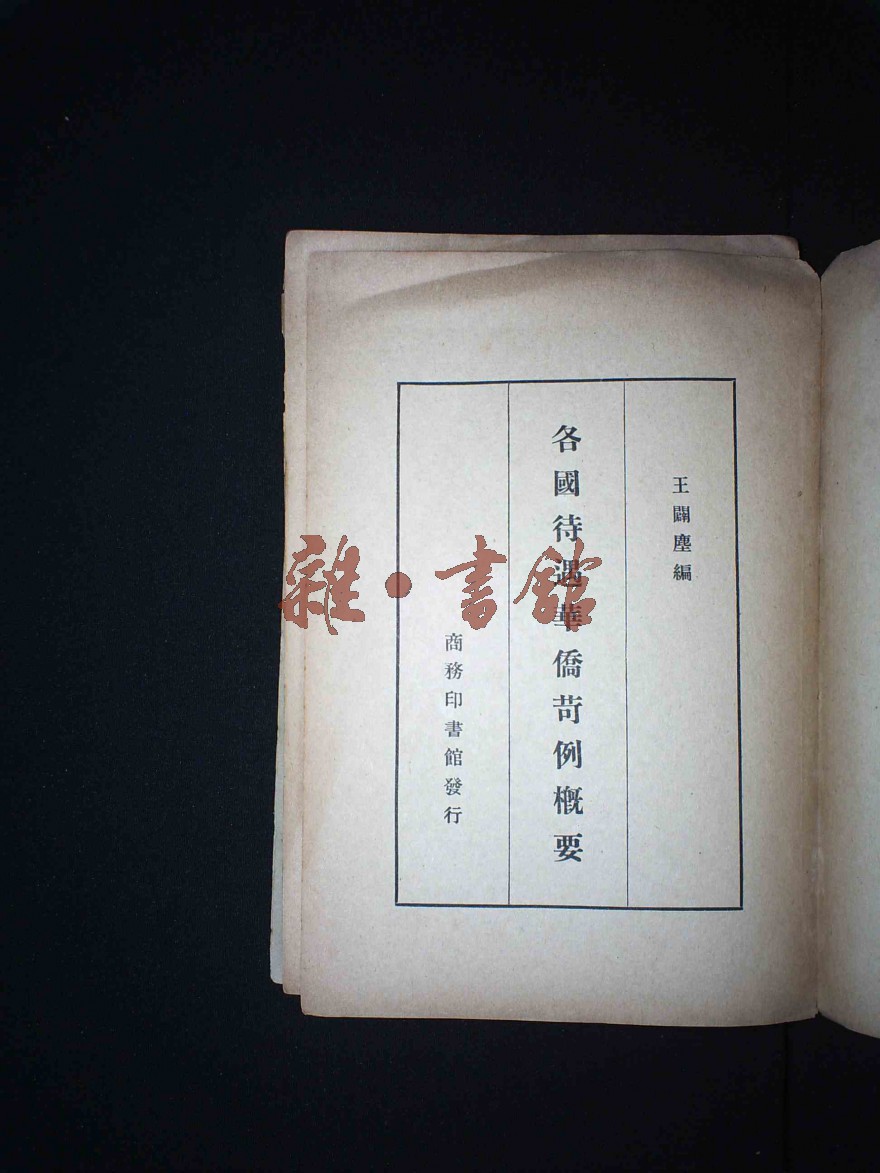 王闢塵編
各國待遇華僑苛例概要
商務印書館發行
雜·書館